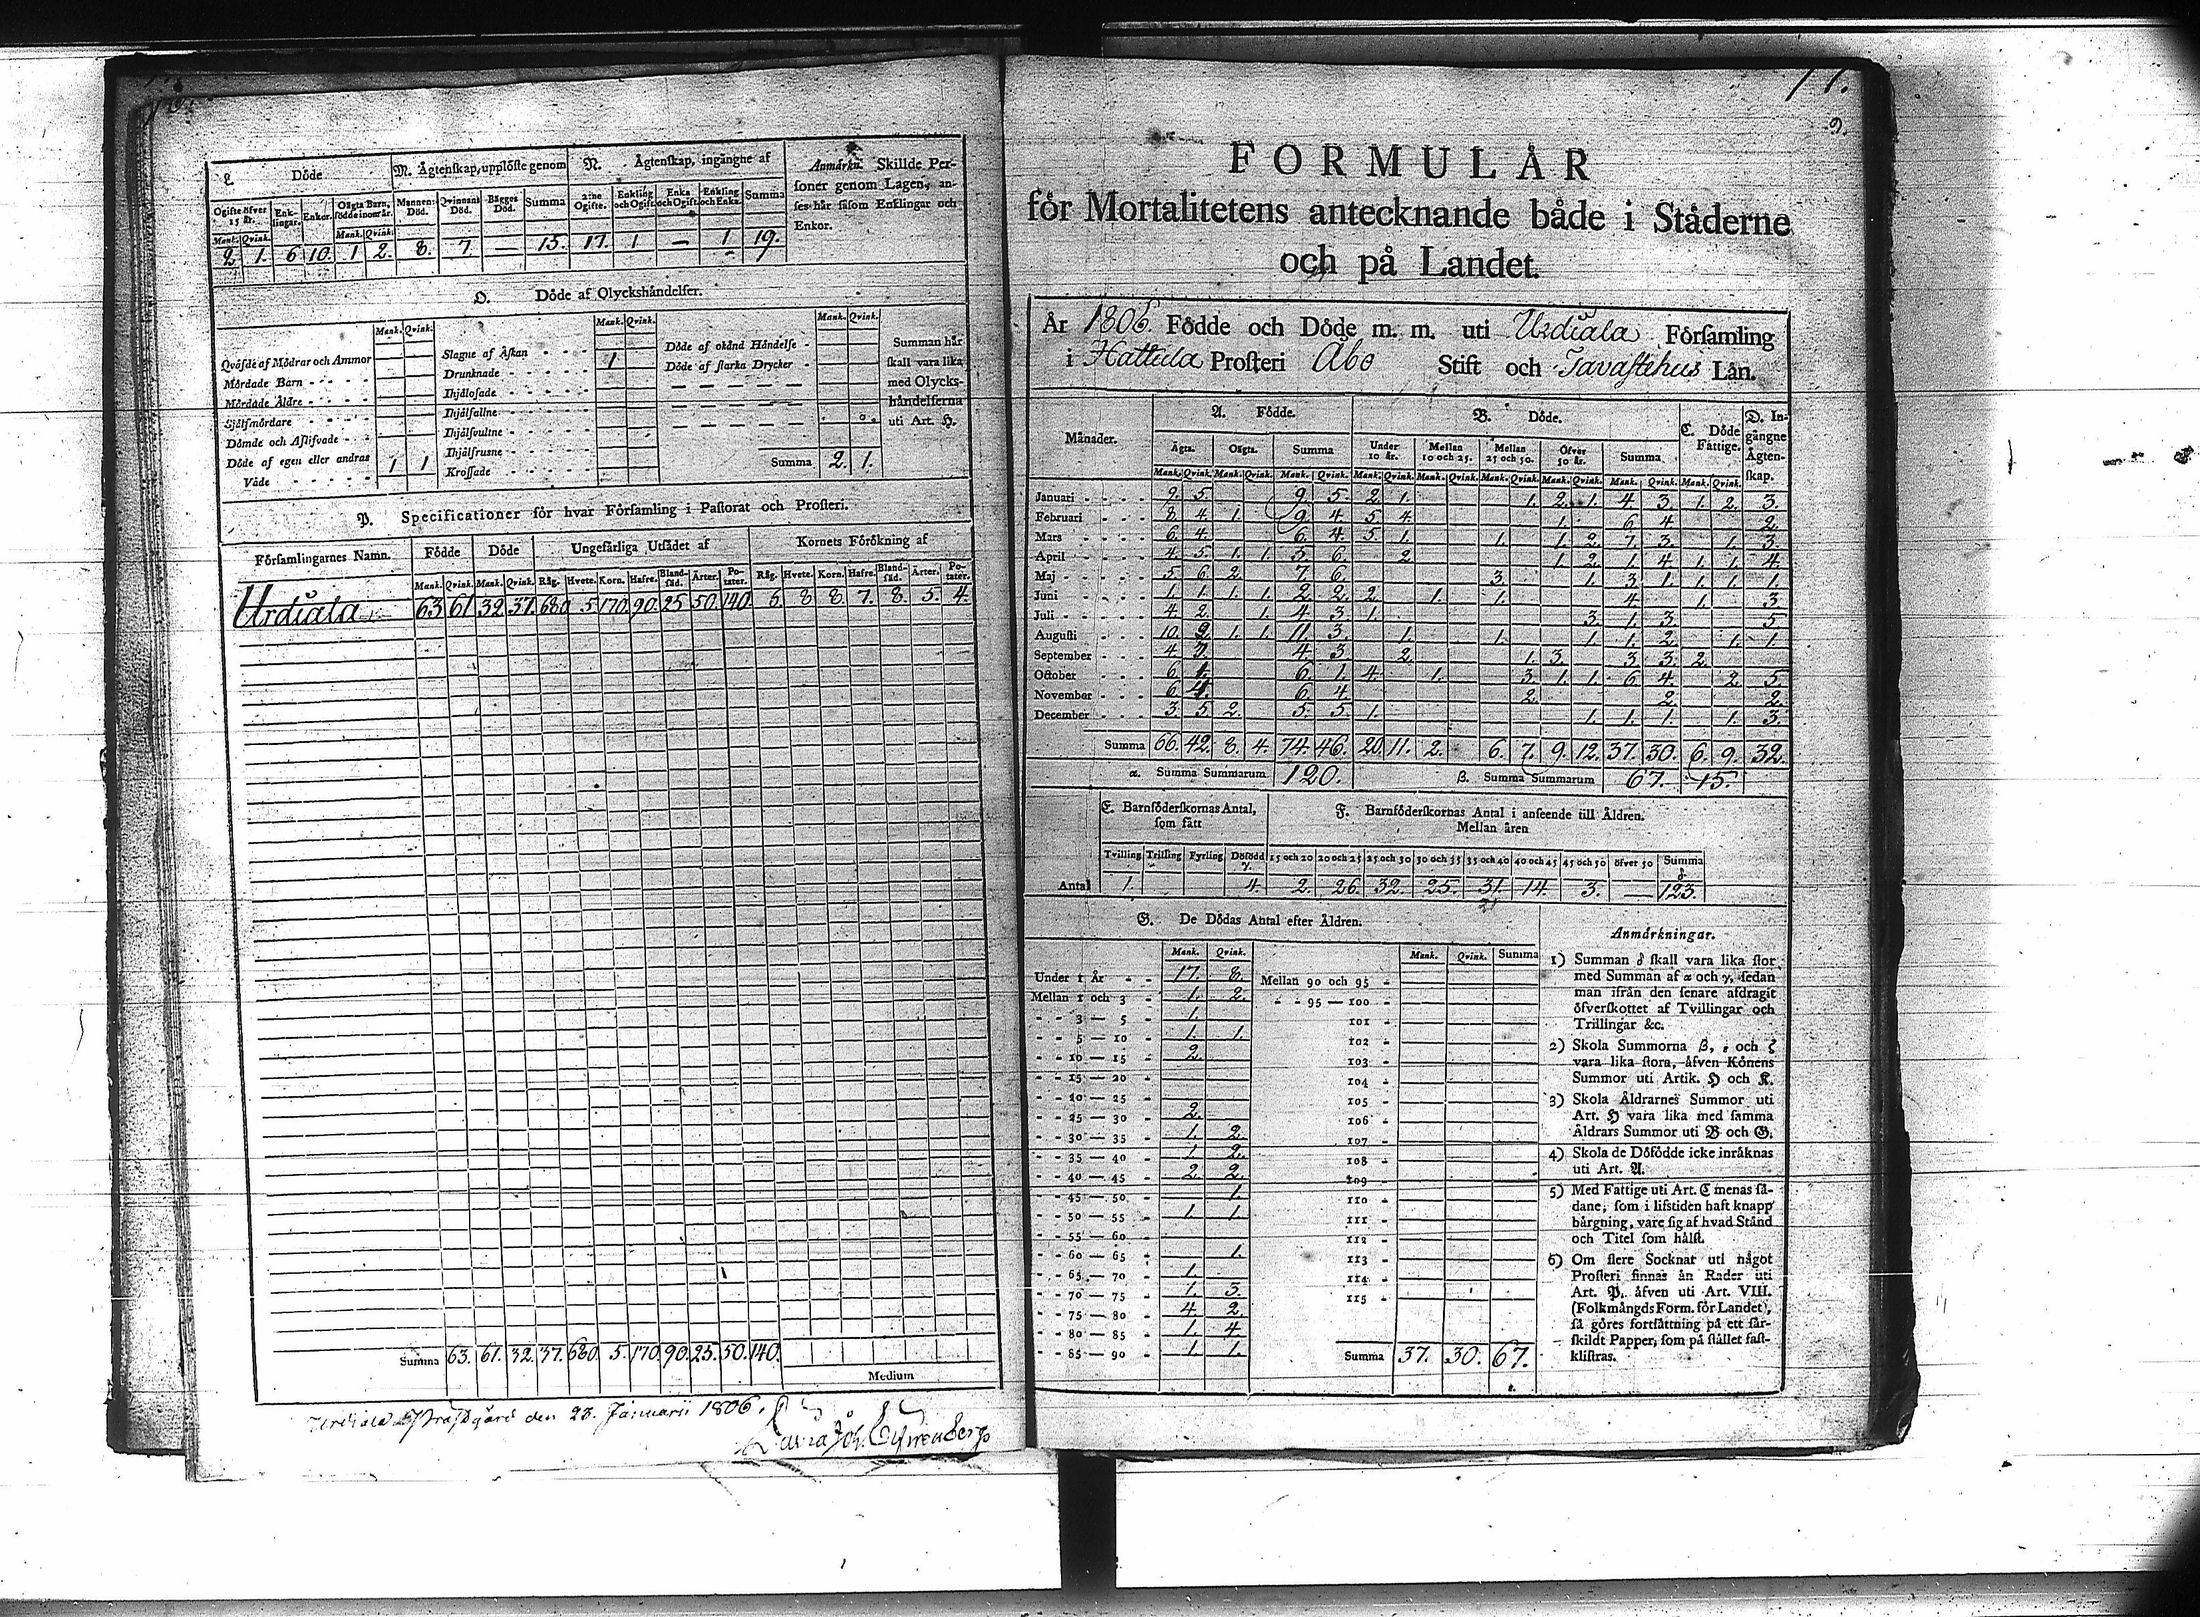 L Döde M. Ägtenskap, upplöste genom N. Ägtenskap, ingångne af Anmärkn. Skillde Personer genom Lagen, anses här såsom Enklingar och Enkor.
Ogifte öfver 15 år. Enklingar. Enkor. Oägta Barn, födde inom år. Mannens Död. Qvinnans Död. Bägges Död. Summa 2:ne Ogifte. Enkling och Ogift. Enka och Ogift. Enkling och Enka. Summa
Mank. Qvink. Mank. Qvink.
2. 1. 6 10. 1 2. 8. 7. — 15. 17. 1 — 1 19.
O. Döde af Olyckshändelser.
Mank. Qvink. Mank. Qvink. Mank. Qvink.
Qväfde af Mödrar och Ammor
Mördade Barn
Mördade Äldre
Sjålfmördare
Dömde och Aflifvade
Döde af egen eller andras Våde 1 1
Slagne af Åskan
Drunknade 1
Ihjälosade
Ihjälfallne
Ihjälsvultne
Ihjälfrusne
Krossade
Döde af okänd Händelse
Döde af starka Drycker
Summa 2. 1.
Summan här skall vara lika med Olyckshändelserna uti Art. H.
P. Specificationer för hvar Församling i Pastorat och Prosteri.
Församlingarnes Namn. Födde Döde Ungefärliga Utsädet af Kornets Förökning af
Mank. Qvink. Mank. Qvink. Råg. Hvete. Korn. Hafre. Blandsäd. Ärter. Potater. Råg. Hvete. Korn. Hafre. Blandsäd. Ärter. Potater.
Urdiala 63 61 32 37 680 5 170 90. 25 50. 140 6. 8 8. 7. 8. 5. 4.
Summa 63. 61. 32. 37. 680. 5. 170. 90. 25. 50. 140.
Medium
Urdiala Prästgård den 23. Januarii 1806.
FORMULÄR
för Mortalitetens antecknande både i Städerne
och på Landet.
År 1806. Födde och Döde m. m. uti Urdiala Församling
i Hattula Prosteri Åbo Stift och Tavastehus Län.
Månader. A. Födde. B. Döde. C. Döde Fattige. D. Ingångne Ägtenskap.
Ägta. Oägta. Summa Under 10 år. Mellan 10 och 25. Mellan 25 och 50. Öfver 50 år. Summa
Mank. Qvink. Mank. Qvink. Mank. Qvink. Mank. Qvink. Mank. Qvink. Mank. Qvink. Mank. Qvink. Mank. Qvink. Mank. Qvink.
Januari 9. 5. 9. 5. 2. 1. 1. 2. 1. 4. 3. 1. 2. 3.
Februari 8. 4. 1. 9. 4. 5. 4. 1. 6. 4. 2.
Mars 6. 4. 6. 4. 5. 1. 1. 1. 2. 7. 3. 1. 3.
April 4. 5. 1. 1. 5. 6. 2. 1. 2. 1. 4. 1. 1. 4.
Maj 5. 6. 2. 7. 6. 3. 1. 3. 1. 1. 1. 1.
Juni 1. 1. 1. 1. 2. 2. 2. 1. 1. 4. 1. 3.
Juli 4. 2. 1. 4. 3. 1. 3. 1. 3. 5.
Augusti 10. 2. 1. 1. 11. 3. 1. 1. 1. 1. 2. 1. 1.
September 4. 4. 3. 2. 1. 3. 3. 3. 2.
October 6. 1. 6. 1. 4. 1. 3. 1. 1. 6. 4. 2. 5.
November 6. 4. 6. 4. 2. 2. 2.
December 3. 5. 2. 5. 5. 1. 1. 1. 1. 1. 3.
Summa 66. 42. 8. 4. 74. 46. 20. 11. 2. 6. 7. 9. 12. 37. 30. 6. 9. 32.
α. Summa Summarum 120. β. Summa Summarum 67. 15.
E. Barnföderskornas Antal, som fått F. Barnföderskornas Antal i anseende till Åldren. Mellan åren
Tvilling Trilling Fyrling Dösödd γ. 15 och 20 20 och 25 25 och 30 30 och 35 35 och 40 40 och 45 45 och 50 öfver 50 Summa δ
Antal 1. 4. 2. 26. 32. 25. 31. 14. 3. — 123.
21
G. De Dödas Antal efter Åldren.
Mank. Qvink. Mank. Qvink. Summa
Under 1 År 17. 8.
Mellan 1 och 3 1. 2.
3 — 5 1.
5 — 10 1. 1.
10 — 15 2.
15 — 20
20 — 25
25 — 30 2.
30 — 35 1. 2.
35 — 40 1. 2.
40 — 45 2. 2.
45 — 50 1.
50 — 55 1. 1.
55 — 60
60 — 65 1.
65 — 70 1.
70 — 75 1. 3.
75 — 80 4. 2.
80 — 85 1. 4.
85 — 90 1. 1.
Mellan 90 och 95
95 — 100
101
102
103
104
105
106
107
108
109
110
111
112
113
114
115
Summa 37. 30. 67.
Anmärkningar.
1) Summan δ skall vara lika stor
med Summan af α och γ, sedan
man ifrån den senare afdragit
öfverskottet af Tvillingar och
Trillingar &c.
2) Skola Summorna β, ε och ζ
vara lika stora, äfven Könens
Summor uti Artik. H och K.
3) Skola Åldrarnes Summor uti
Art. H vara lika med samma
Åldrars Summor uti B och G.
4) Skola de Dösödde icke inräknas
uti Art. A.
5) Med Fattige uti Art. C menas så-
dane, som i lifstiden haft knapp
bärgning, vare sig af hvad Stånd
och Titel som hälst.
6) Om flere Socknar uti något
Prosteri finnas än Rader uti
Art. P. äfven uti Art. VIII.
(Folkmängds Form. för Landet),
så göres fortsättning på ett sär-
skildt Papper, som på stället fast-
klistras.